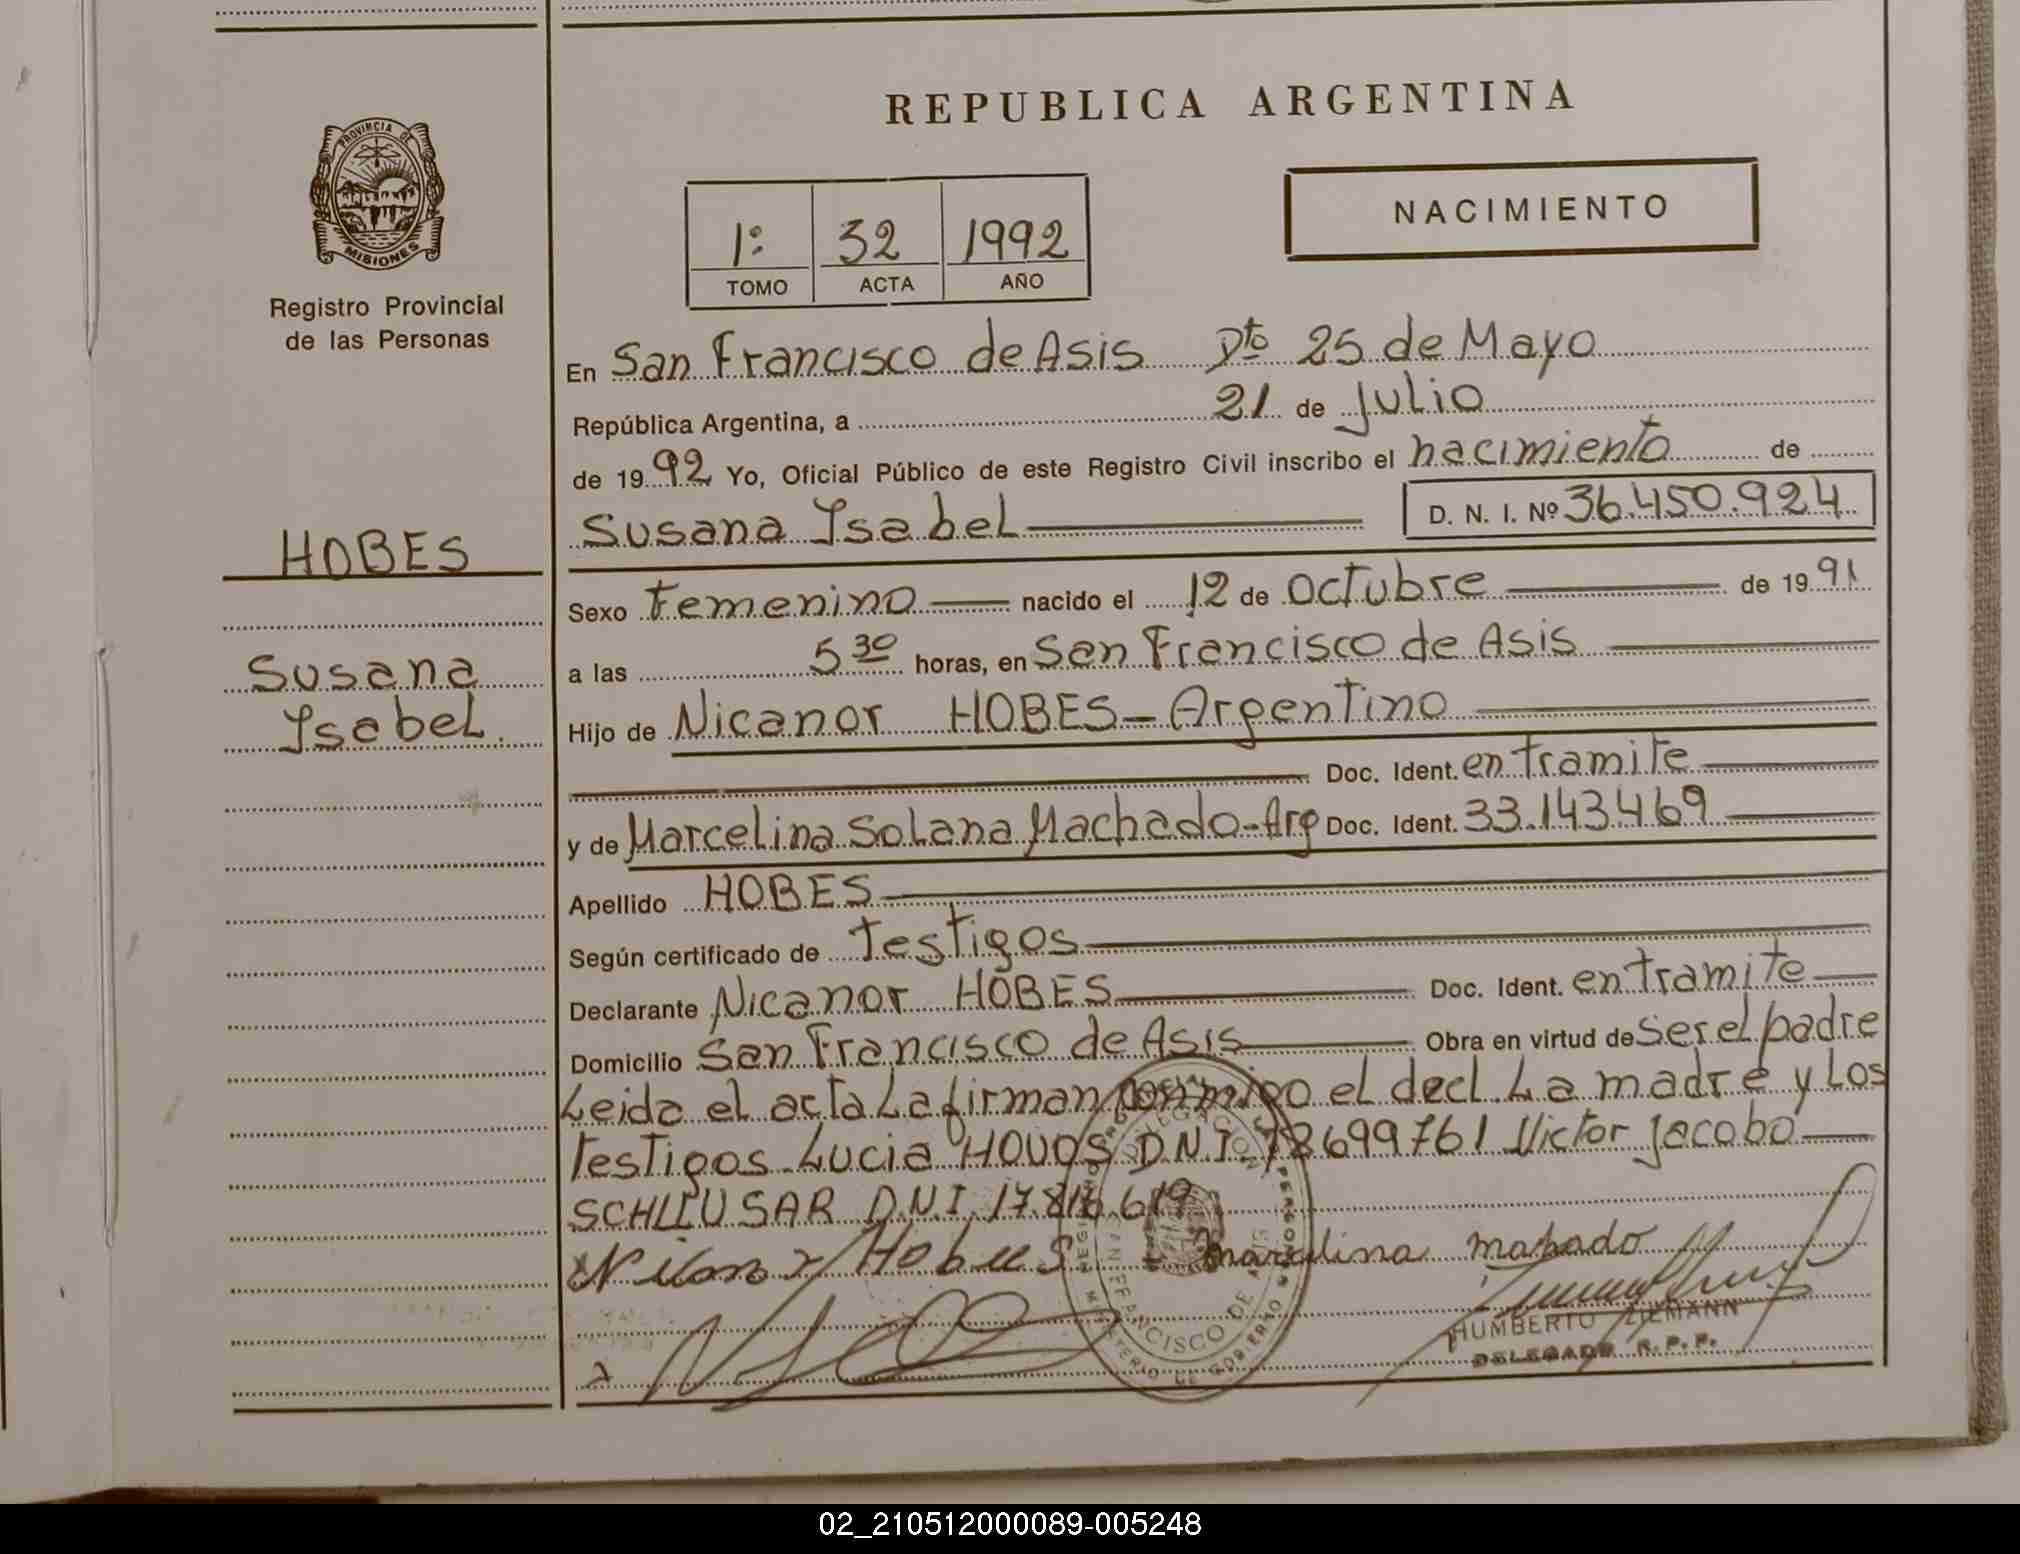 REPUBLICA ARGENTINA
PROVINCIA DE
MISIONES
Registro Provincial
de las Personas
1º 32 1992
TOMO ACTA AÑO
NACIMIENTO
En San Francisco de Asis Dto 25 de Mayo
República Argentina, a 21 de Julio
de 1992 Yo, Oficial Público de este Registro Civil inscribo el nacimiento de
Susana Ysabel D. N. I. Nº 36.450.924
HOBES
Susana
Ysabel.
Sexo femenino nacido el 12 de octubre de 1991
a las 5 30 horas, en San Francisco de Asis
Hijo de Nicanor HOBES - Argentino
Doc. Ident. en tramite
y de Marcelina Solana Machado - Arg Doc. Ident. 33.143.469
Apellido HOBES
Según certificado de Testigos
Declarante Nicanor HOBES Doc. Ident. en tramite
Domicilio San Francisco de Asis Obra en virtud de ser el padre
Leida el acta La firman conmigo el decl. La madre y Los
testigos Lucia D.N.I. Victor Jacobo
D.N.I.
Hobes marcelina
HUMBERTO ZIEMANN
DELEGADO R.P.P.
02_210512000089-005248